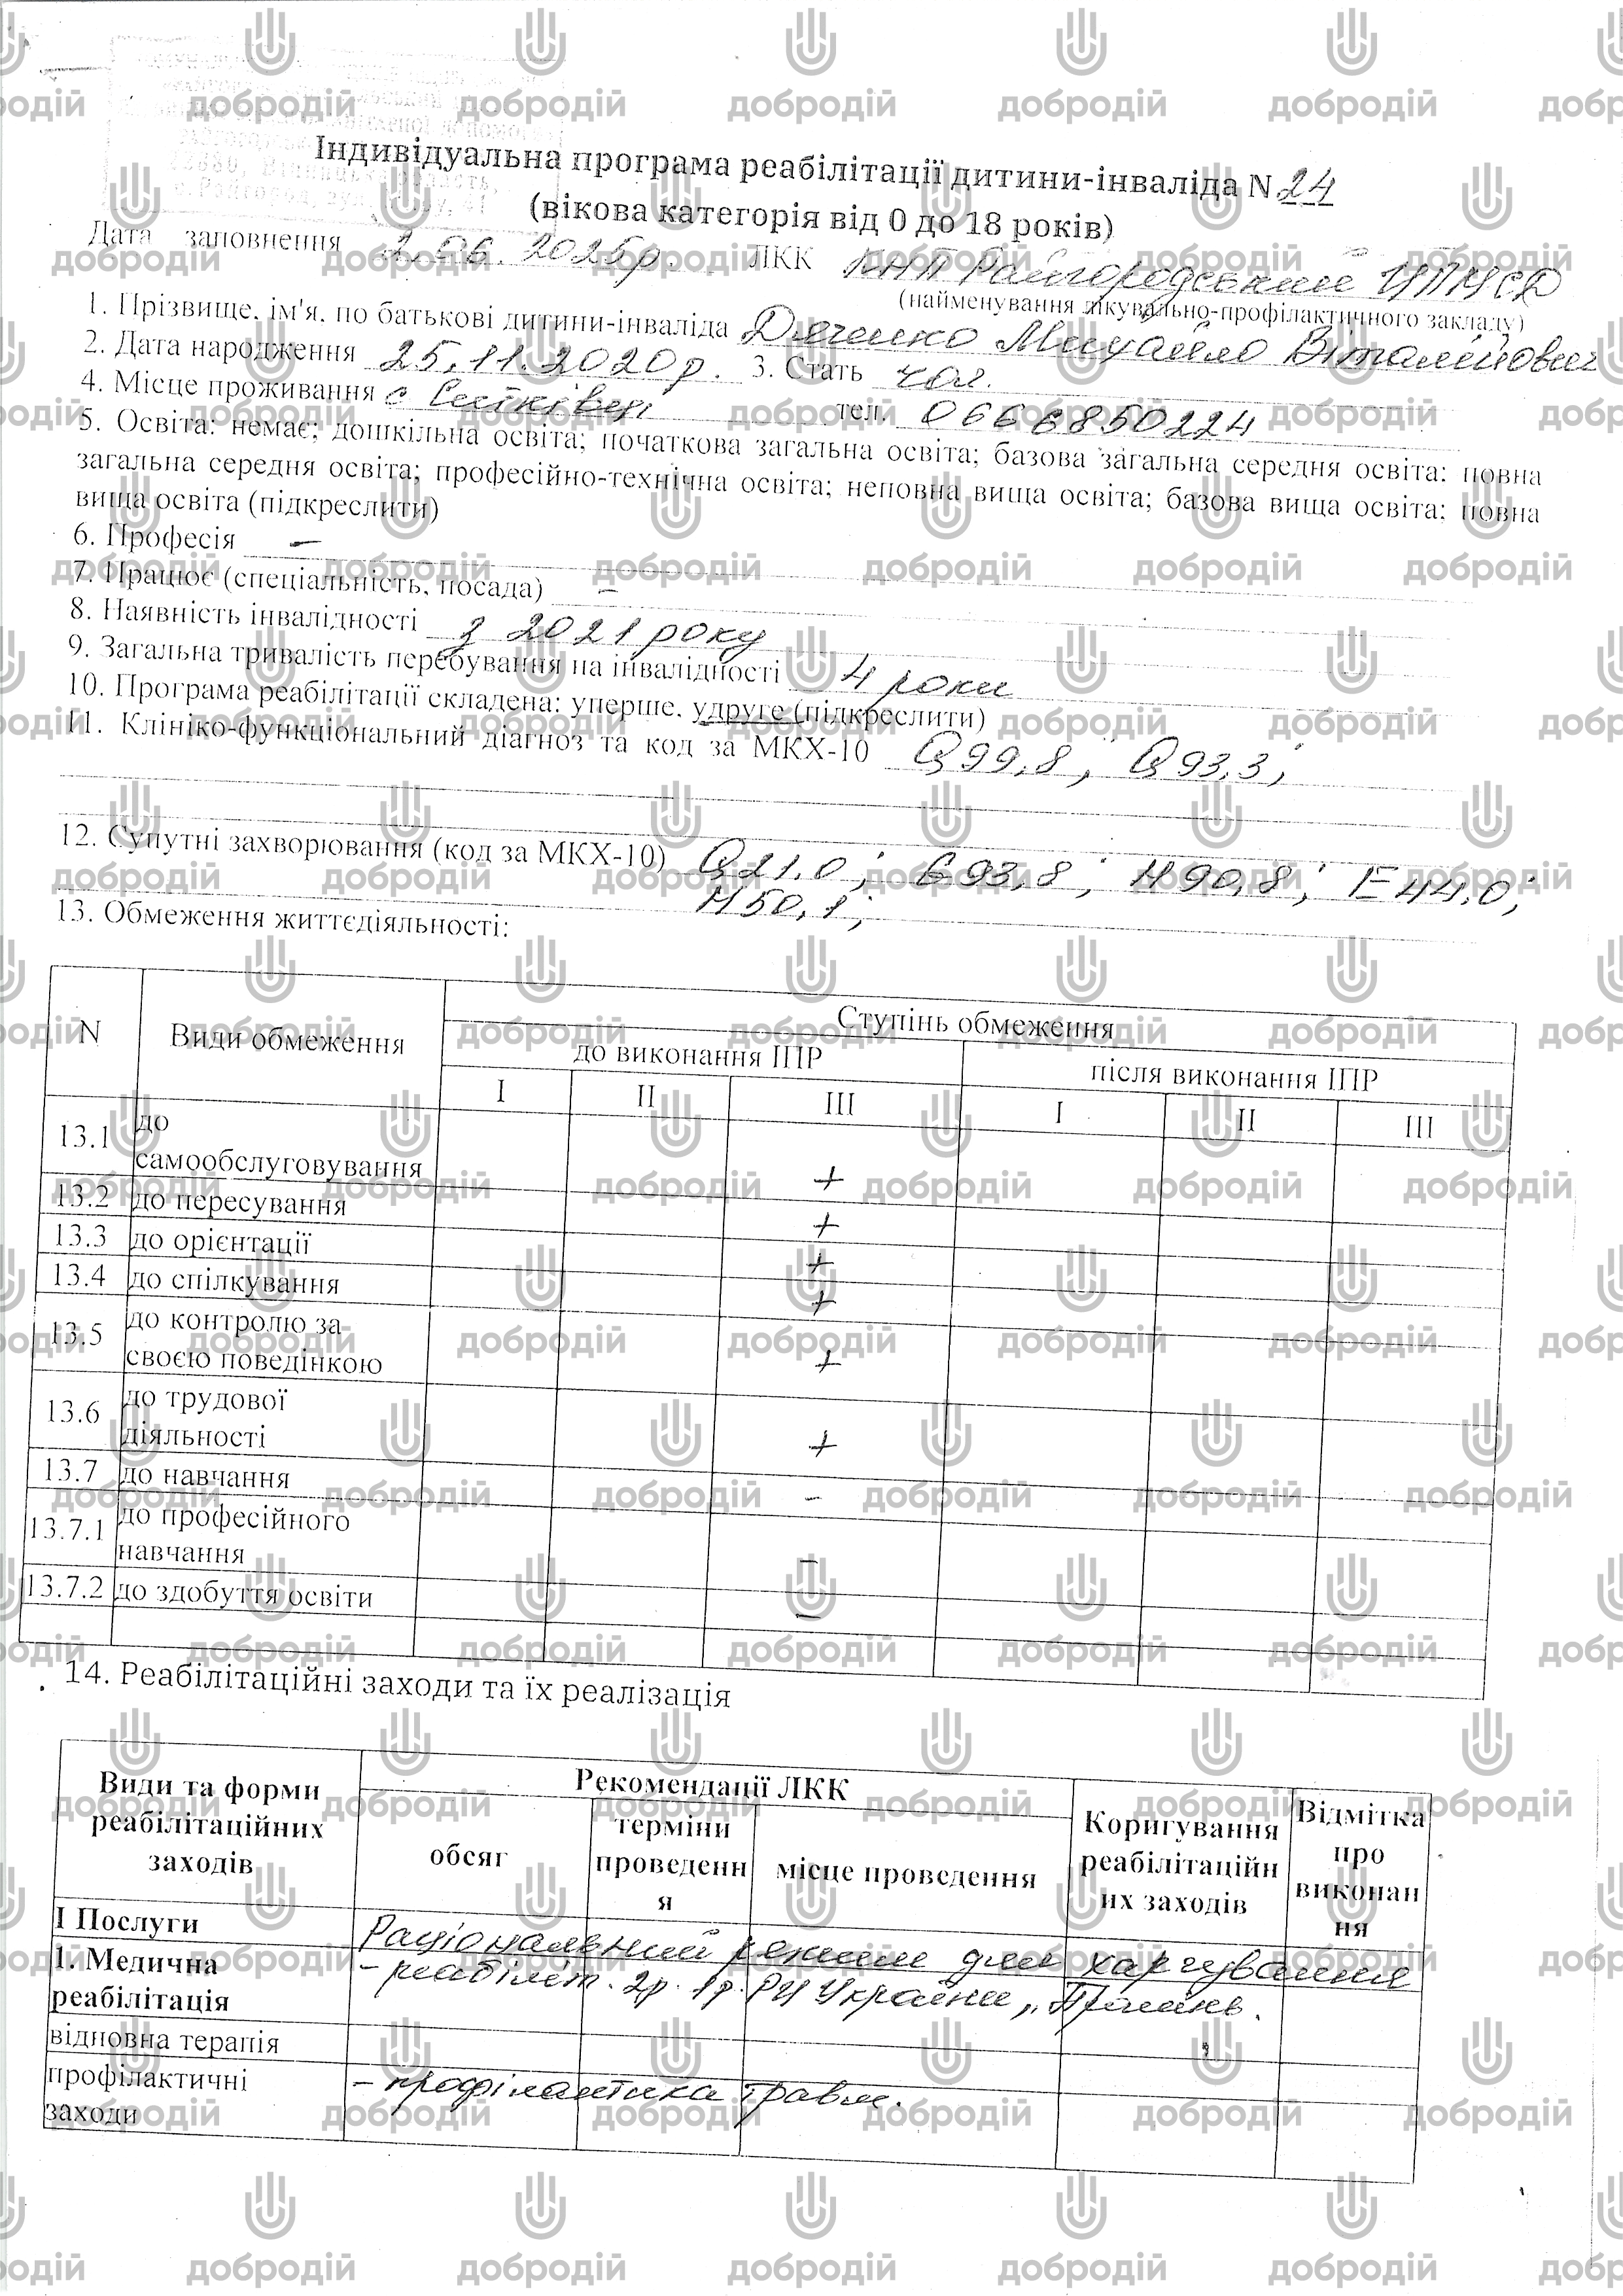 Індивідуальна програма реабілітації дитини-інваліда N 24
(вікова категорія від 0 до 18 років)
Дата заповнення 2.06.2025р. ЛКК КНП Райгородський ЦПМСД
(найменування лікувально-профілактичного закладу)
1. Прізвище, ім'я, по батькові дитини-інваліда Дяченко Михайло Віталійович
2. Дата народження 25.11.2020р. 3. Стать чол.
4. Місце проживання с Ситківці тел. 0666850224
5. Освіта: немає; дошкільна освіта; початкова загальна освіта; базова загальна середня освіта: повна
загальна середня освіта; професійно-технічна освіта; неповна вища освіта; базова вища освіта; повна
вища освіта (підкреслити)
6. Професія –
7. Працює (спеціальність, посада) –
8. Наявність інвалідності з 2021 року
9. Загальна тривалість перебування на інвалідності 4 роки
10. Програма реабілітації складена: уперше, удруге (підкреслити)
11. Клініко-функціональний діагноз та код за МКХ-10 Q99,8; Q93,3;
12. Супутні захворювання (код за МКХ-10) Q21.0; G93,8; H90,8; E44,0;
H50,1;
13. Обмеження життєдіяльності:
N Види обмеження Ступінь обмеження
до виконання ІПР після виконання ІПР
I II III I II III
13.1 до
самообслуговування +
13.2 до пересування +
13.3 до орієнтації +
13.4 до спілкування +
13.5 до контролю за
своєю поведінкою +
13.6 до трудової
діяльності +
13.7 до навчання –
13.7.1 до професійного
навчання –
13.7.2 до здобуття освіти –
14. Реабілітаційні заходи та їх реалізація
Види та форми
реабілітаційних
заходів
Рекомендації ЛКК
обсяг
терміни
проведенн
я
місце проведення
Коригування
реабілітаційн
их заходів
Відмітка
про
виконан
ня
І Послуги
Раціональний режим дня харчування
1. Медична
реабілітація
- реабіліт. 2р. 1р. РЦ України,
відновна терапія
профілактичні
заходи
- профілактика травм.
добродій